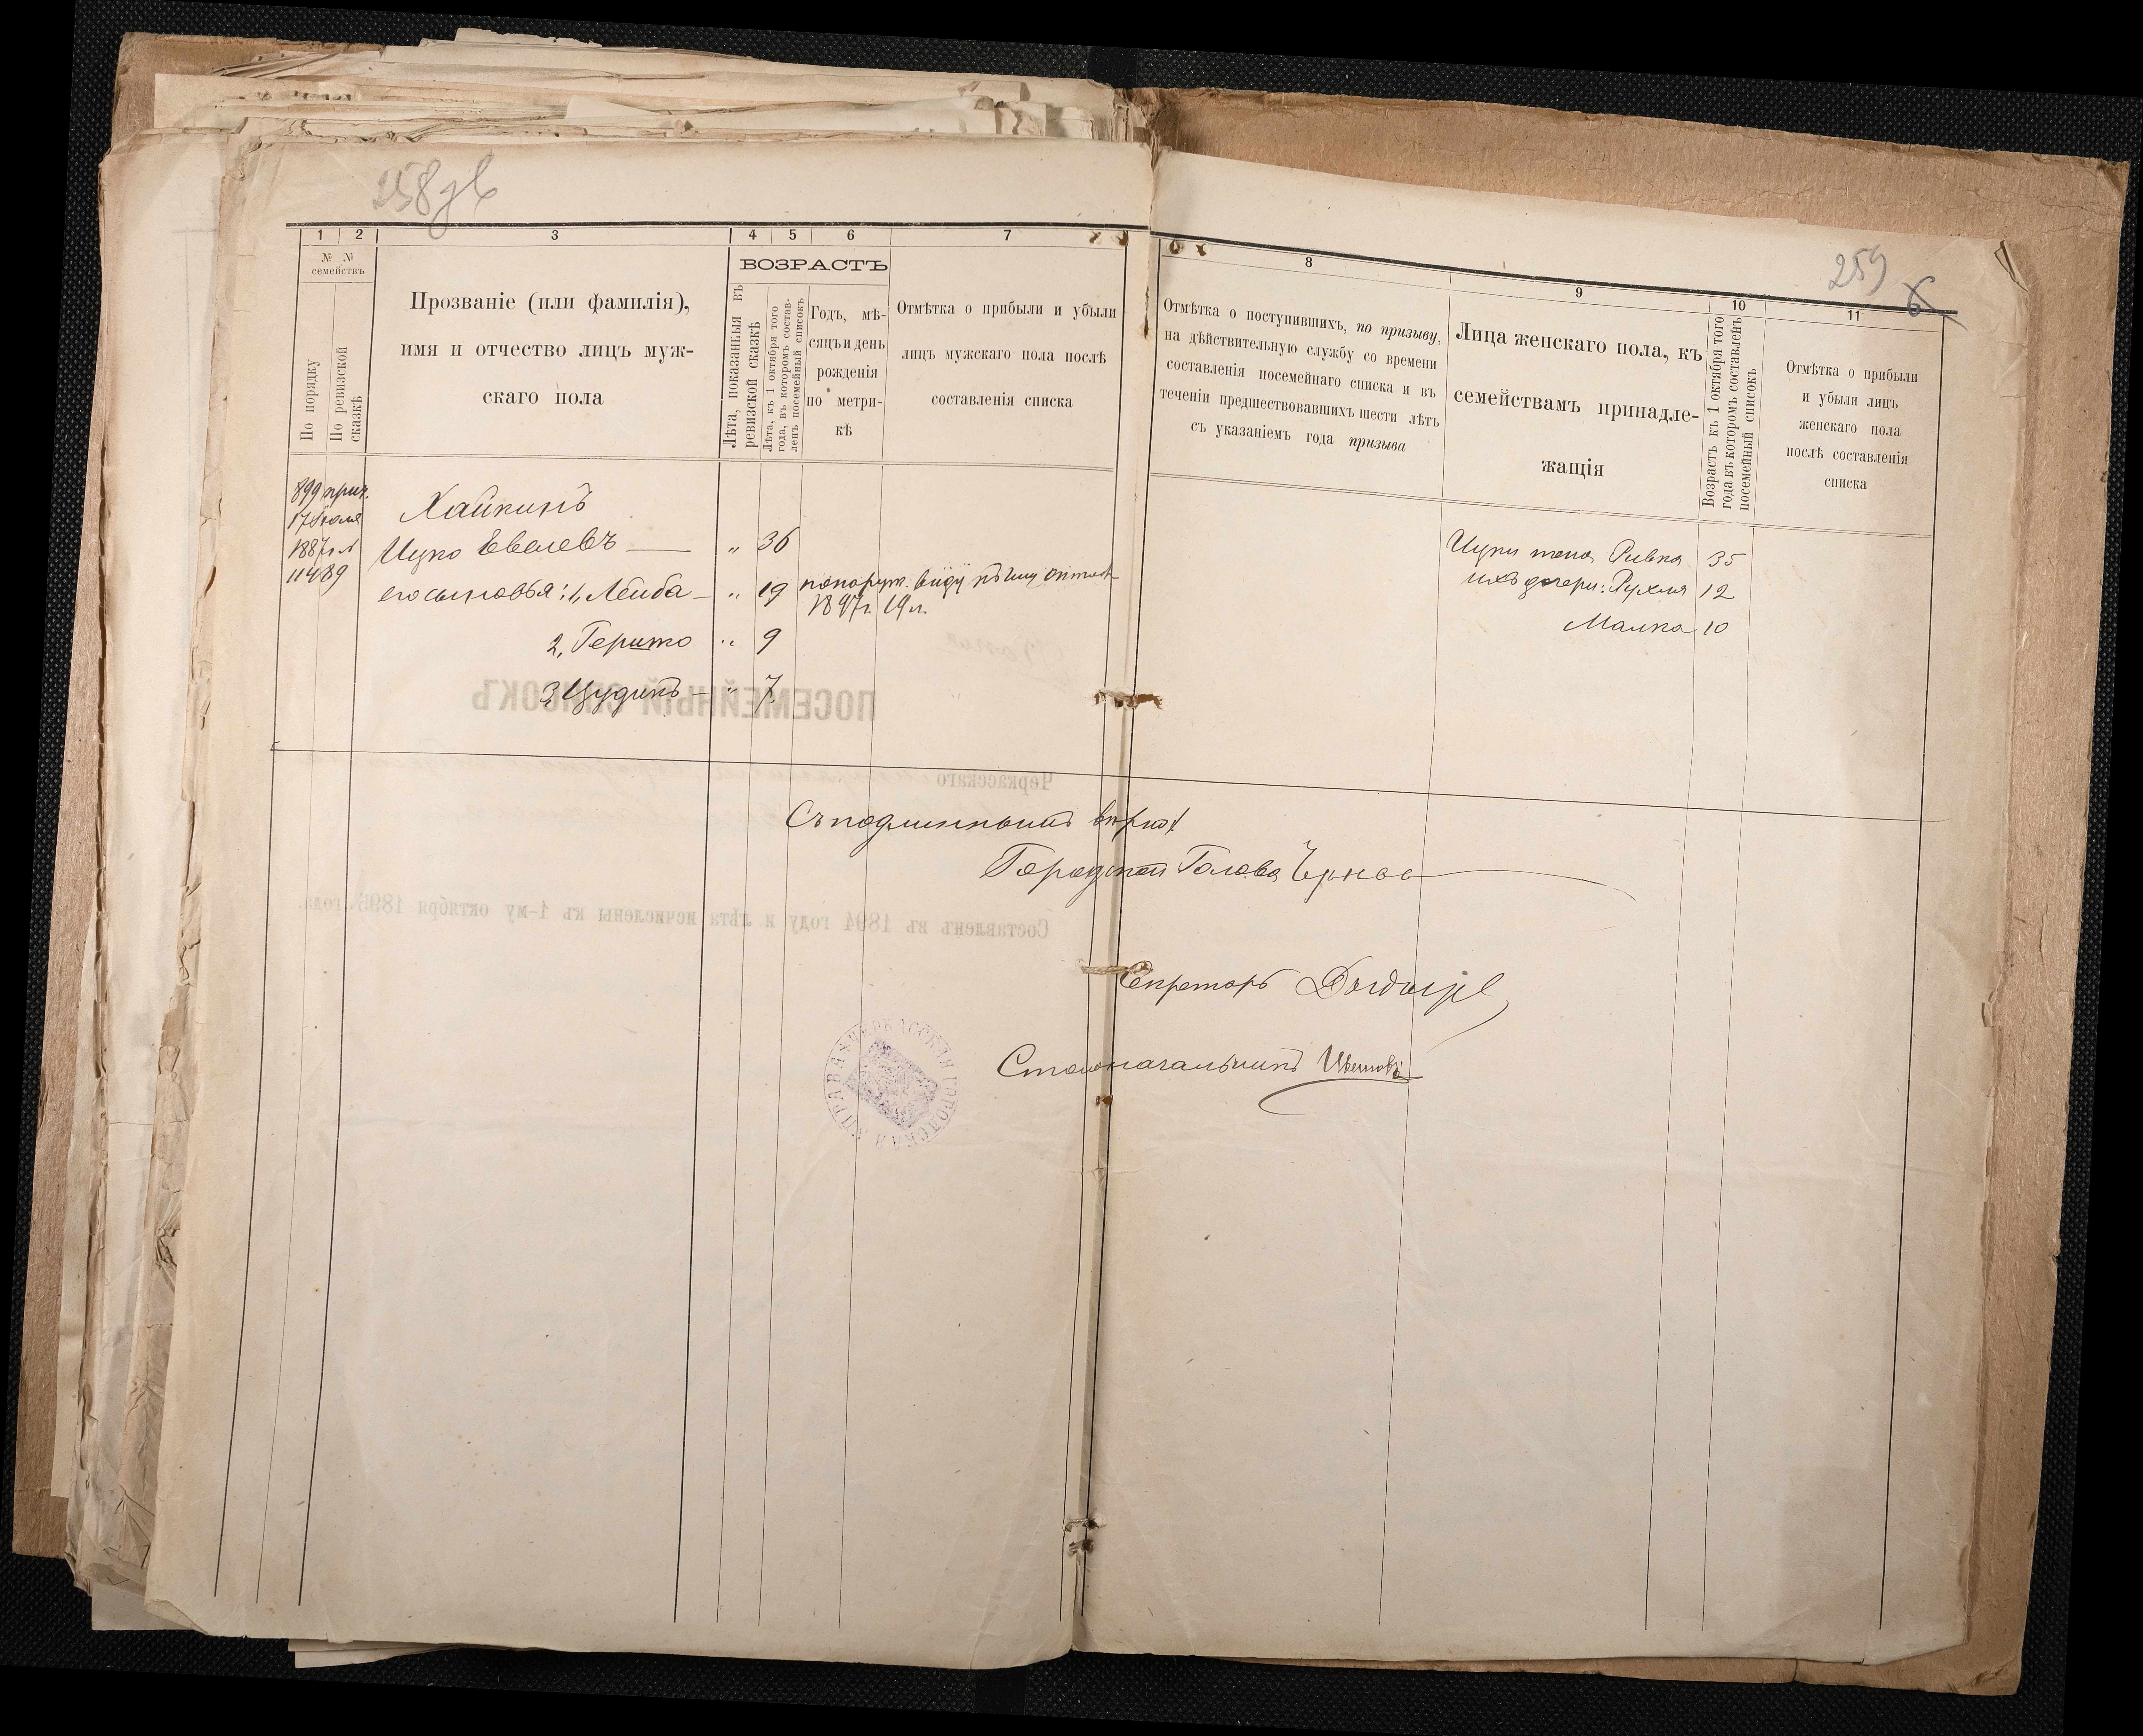 258
1 2 3 4 5 6 7
№ № семействъ
По порядку
По ревизской сказкѣ
Прозваніе (или фамилія),
имя и отчество лицъ муж-
скаго пола
ВОЗРАСТЪ
Лѣта, показанныя въ
ревизской сказкѣ
Лѣта, къ 1 октября того
года, въ которомъ состав-
ленъ посемейный списокъ
Годъ, мѣ-
сяцъ и день
рожденія
по метри-
кѣ
Отмѣтка о прибыли и убыли
лицъ мужскаго пола послѣ
составленія списка
899 прич.
17 Іюля
1887
11489
Хайкинъ
Ицко Евелевъ — „ 36
его сыновья: 1, Лейба — „ 19
1897г. 19 л.
2, Гершко „ 9
3, Цудикъ — „ 7
259
6
8 9 10 11
Отмѣтка о поступившихъ, по призыву,
на дѣйствительную службу со времени
составленія посемейнаго списка и въ
теченіи предшествовавшихъ шести лѣтъ
съ указаніемъ года призыва
Лица женскаго пола, къ
семействамъ принадле-
жащія
Возрастъ къ 1 октября того
года въ которомъ составленъ
посемейный списокъ
Отмѣтка о прибыли
и убыли лицъ
женскаго пола
послѣ составленія
списка
Ицки жена Ривка 35
ихъ дочери: Рухля 12
Малка 10
Съ подлиннымъ вѣрно:
Городской Голова
Секретарь
Столоначальникъ
ЧЕРКАССКАЯ ГОРОДСКАЯ УПРАВА
ПОСЕМЕЙНЫЙ СПИСОКЪ
Черкасскаго
Составленъ въ 1894 году и лѣта исчислены къ 1-му октября 1895 года.